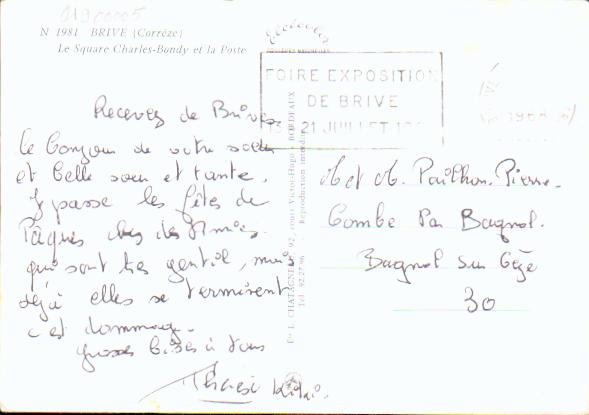 01900005
N 1981 BRIVE (Corrèze)
Le Square Charles-Bondy et la Poste
FOIRE EXPOSITION
DE BRIVE
13 21 JUILLET 19
Recevez de Brives
le bonjour de votre soeur
et belle soeur et tante.
J passe les fêtes de
Pâques chez des Amies
qui sont très gentil, mais
déjà elles se terminent
c'est dommage.
grosses bises à tous
Therese
M et M. Pailhon. Pierre.
Combe Par Bagnol.
Bagnol sur Cèze
30
L. CHATAGNEAU, 92, cours Victor-Hugo - BORDEAUX
Tél. 92.27.96
Reproduction interdite